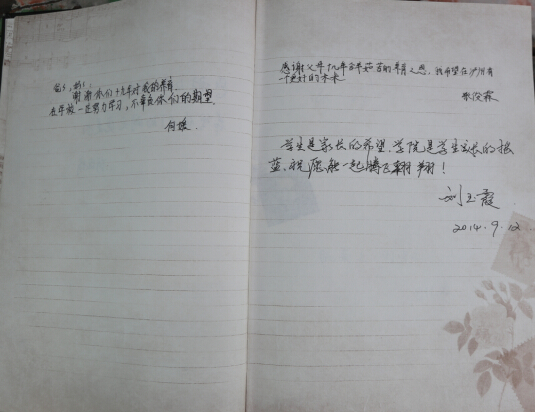 爸爸，妈妈：
谢谢你们十九年对我的养育，
在学校一定努力学习，不辜负你们的期望。
何媛
感谢父母九年含辛茹苦的养育之恩，我希望在泸州有
一个更好的未来
张俊霖
学生是家长的希望，学院是学生成长的摇
篮，祝愿能一起腾飞翱翔！
刘玉霞
2014.9.12